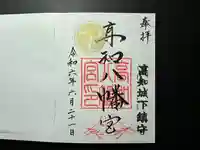 奉拝
高知城下鎮守
高知八幡宮
令和六年六月二十一日